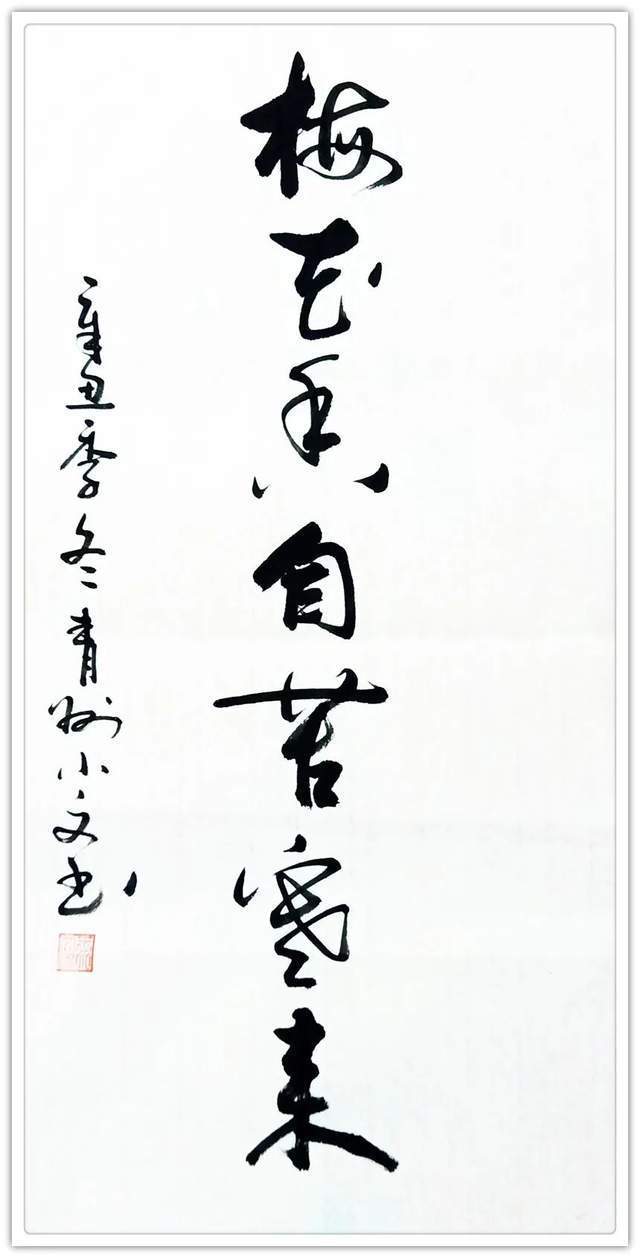 梅花香自苦寒来
辛丑季冬青州小文书